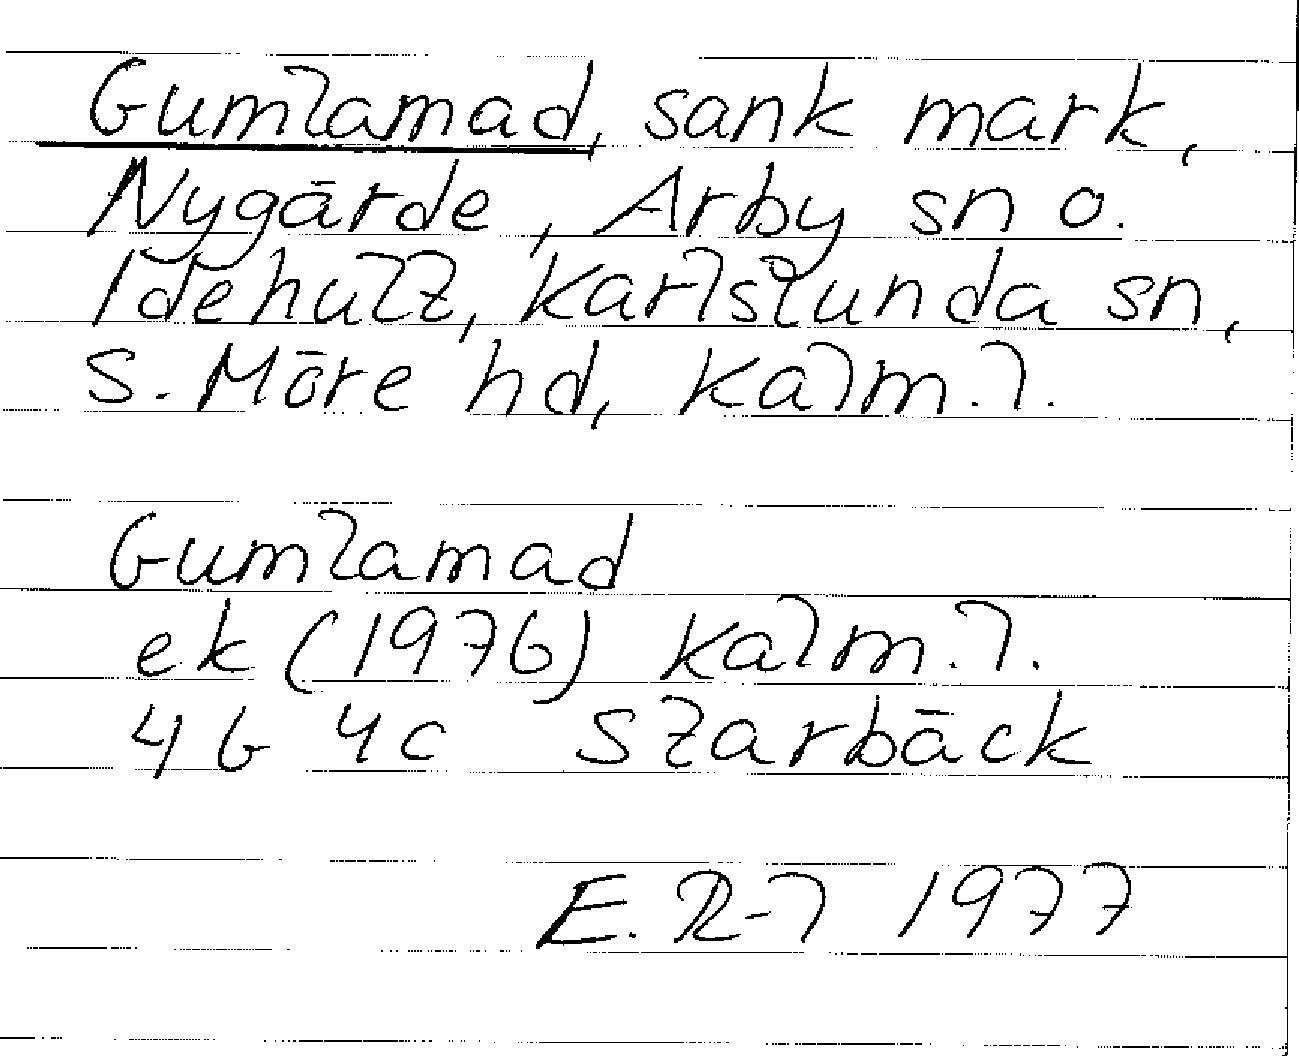 Gumlamad, sank mark,
Nygärde, Arby sn o.
Idehult, Karlslunda sn,
S. Möre hd, Kalm. l.
Gumlamad
ek (1976) Kalm. l.
4G 4c Slarbäck
E. R-l 1977